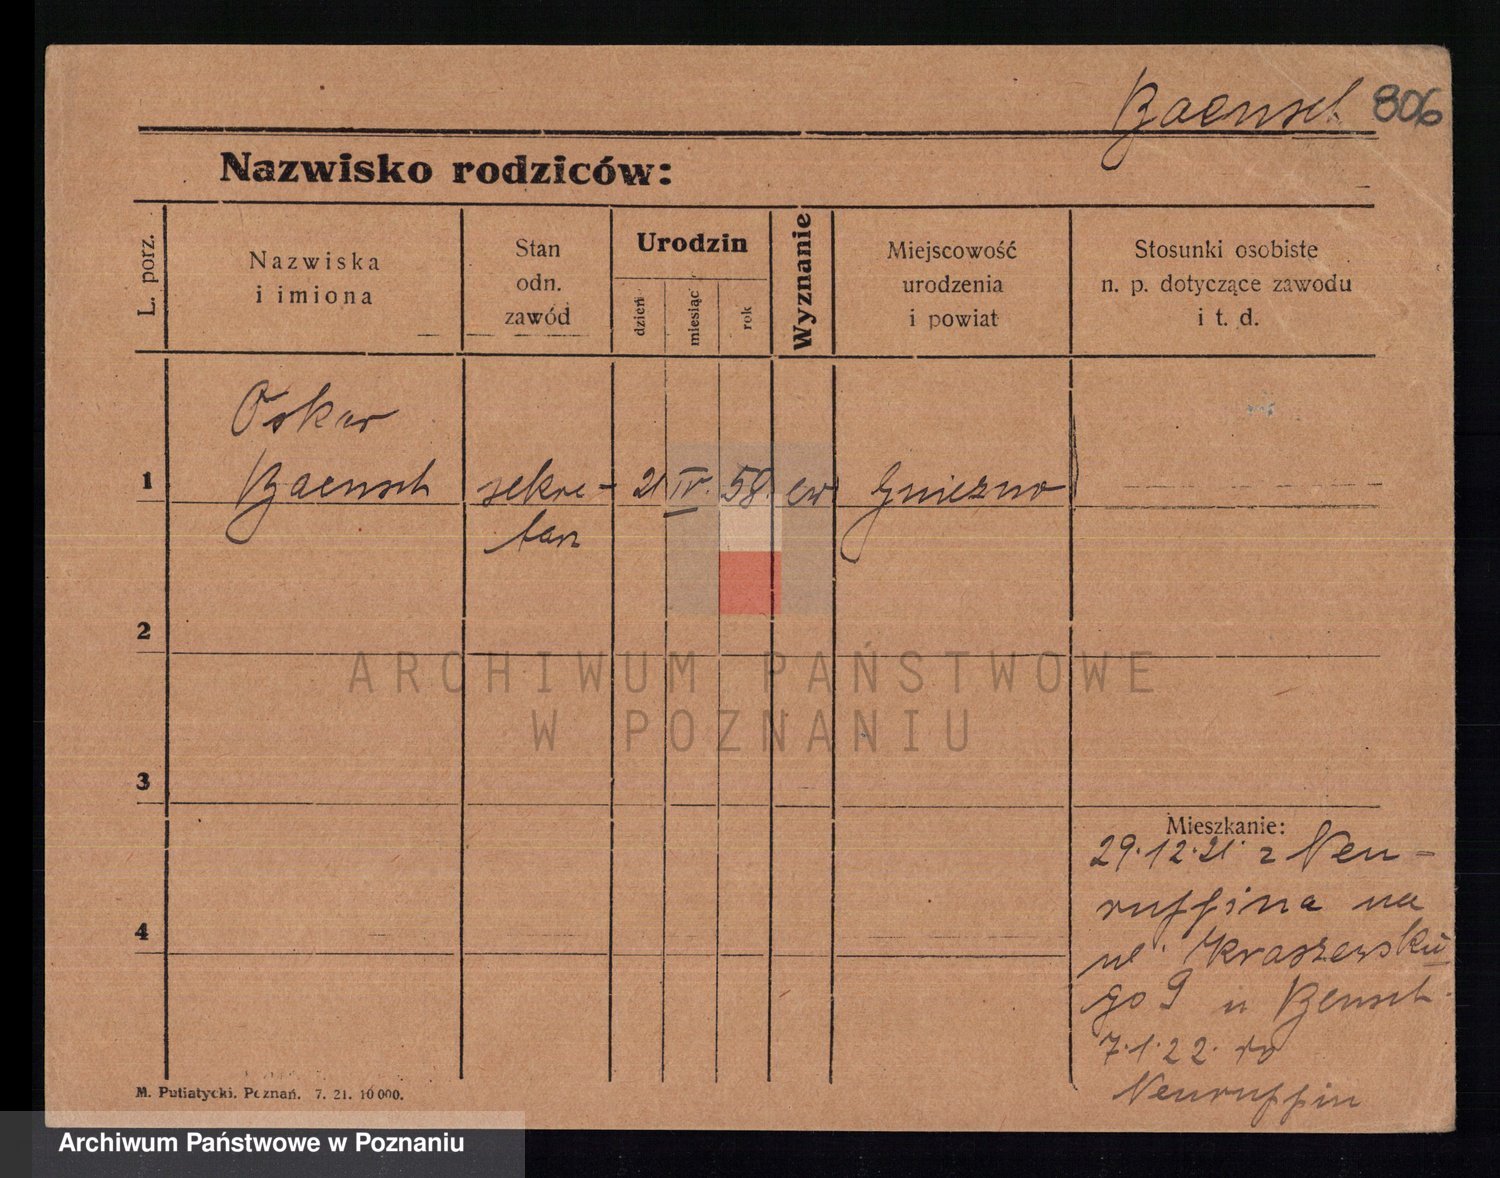 Baensch 806
Nazwisko rodziców:
L. porz.
Nazwiska
i imiona
Stan
odn.
zawód
Urodzin
dzień
miesiąc
rok
Wyznanie
Miejscowość
urodzenia
i powiat
Stosunki osobiste
n. p. dotyczące zawodu
i t. d.
Oskar
1 Baensch sekre- 21 IV. 58. ew Gniezno
tarz
2
3
4
Mieszkanie:
29.12.21. z Neu-
ruppina na
ul. Kraszewskie
go 9 u Bensch.
7.1.22. do
Neuruppin
M. Putiatycki. Poznań. 7. 21. 10 000.
ARCHIWUM PAŃSTWOWE
W POZNANIU
Archiwum Państwowe w Poznaniu